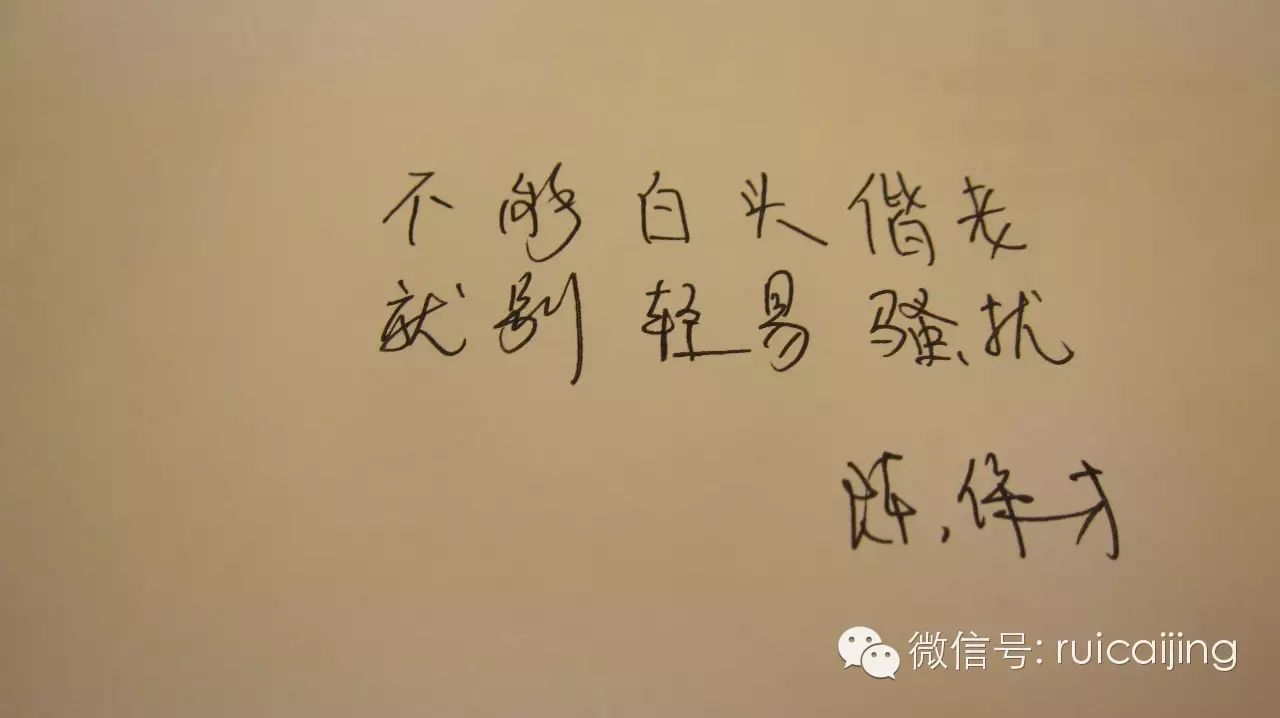 不够白头偕老
就别轻易骚扰
陈,保才
微信号: ruicaijing